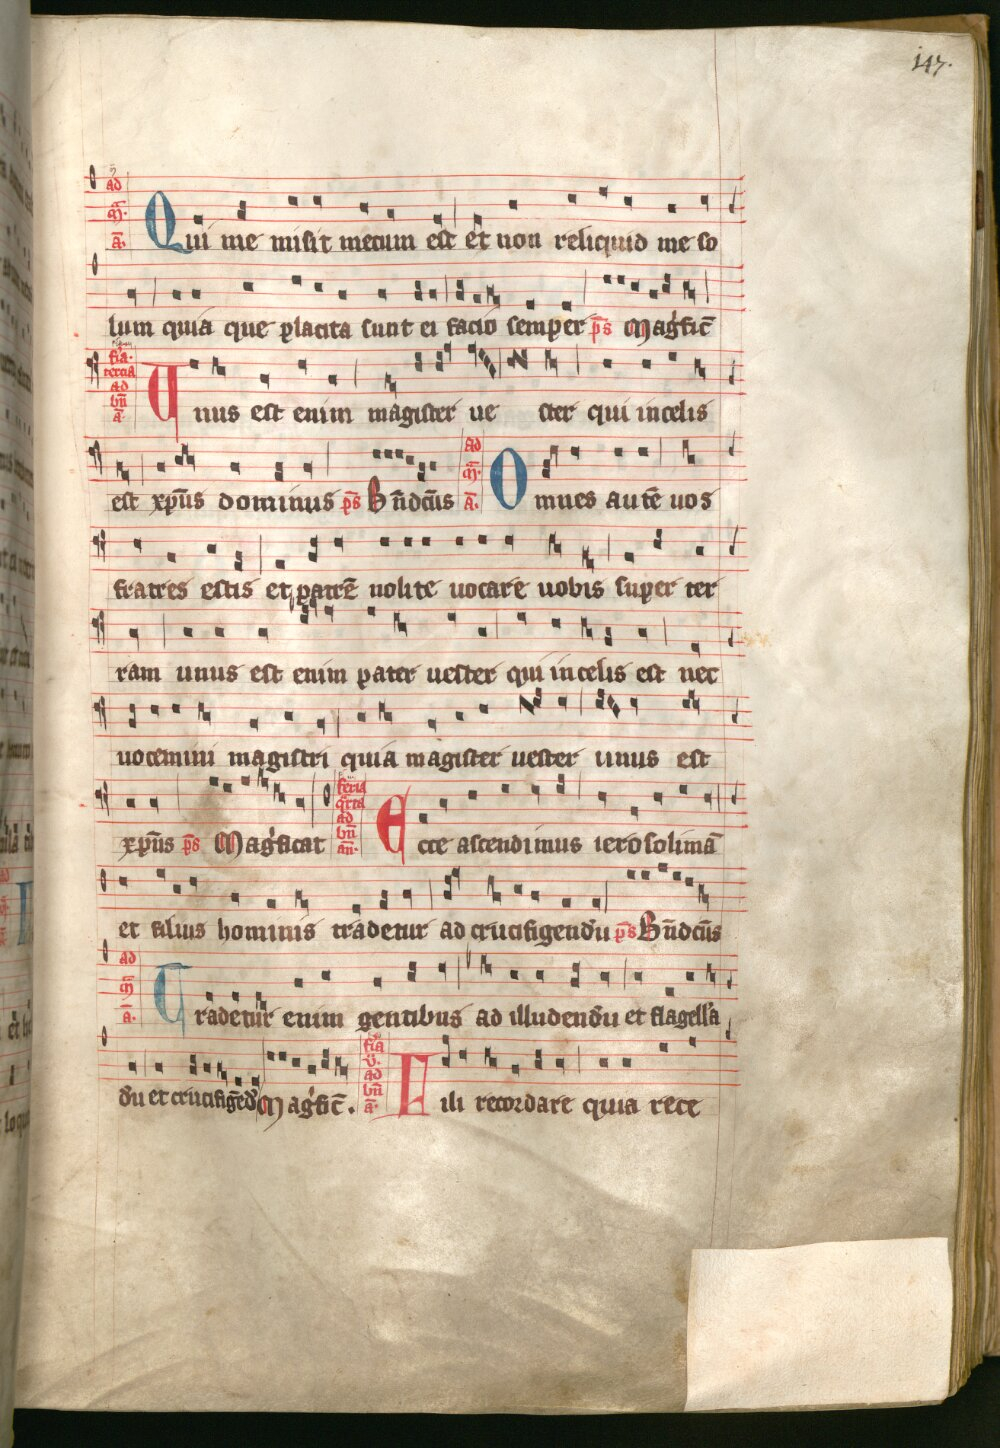 147.
ad m̄. a. Qui me misit mecum est et non reliquid me so
lum quia que placita sunt ei facio semper p̄s Magfic̄
fīa. tercia ad bn̄ a. Unus est enim magister ue ster qui in celis
est xp̄us dominus p̄s Bn̄dcūs ad m̄. a. Omnes autē uos
fratres estis et patrē nolite uocare uobis super ter
ram unus est enim pater uester qui in celis est nec
uocemini magistri quia magister uester unus est
xp̄us p̄s Magficat feria q̄rta ad bn̄ an̄. Ecce ascendimus ierosolimā
et filius hominis tradetur ad crucifigendū p̄s Bn̄dcūs
ad m̄ a. Tradetur enim gentibus ad illudendū et flagella
dū et crucifigēdū Magfic̄. fīa v. ad bn̄ a. Fili recordare quia rece